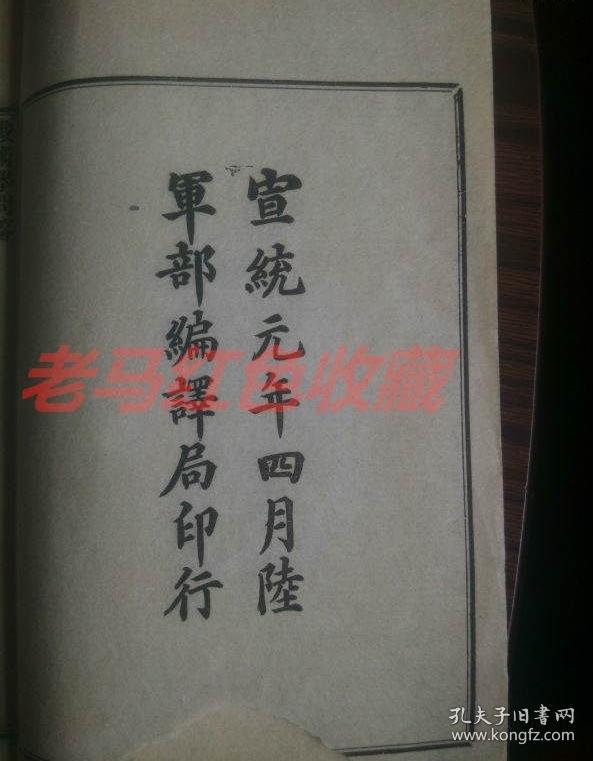 宣統元年四月陸
軍部編譯局印行
老马红色收藏
孔夫子旧书网
www.kongfz.com